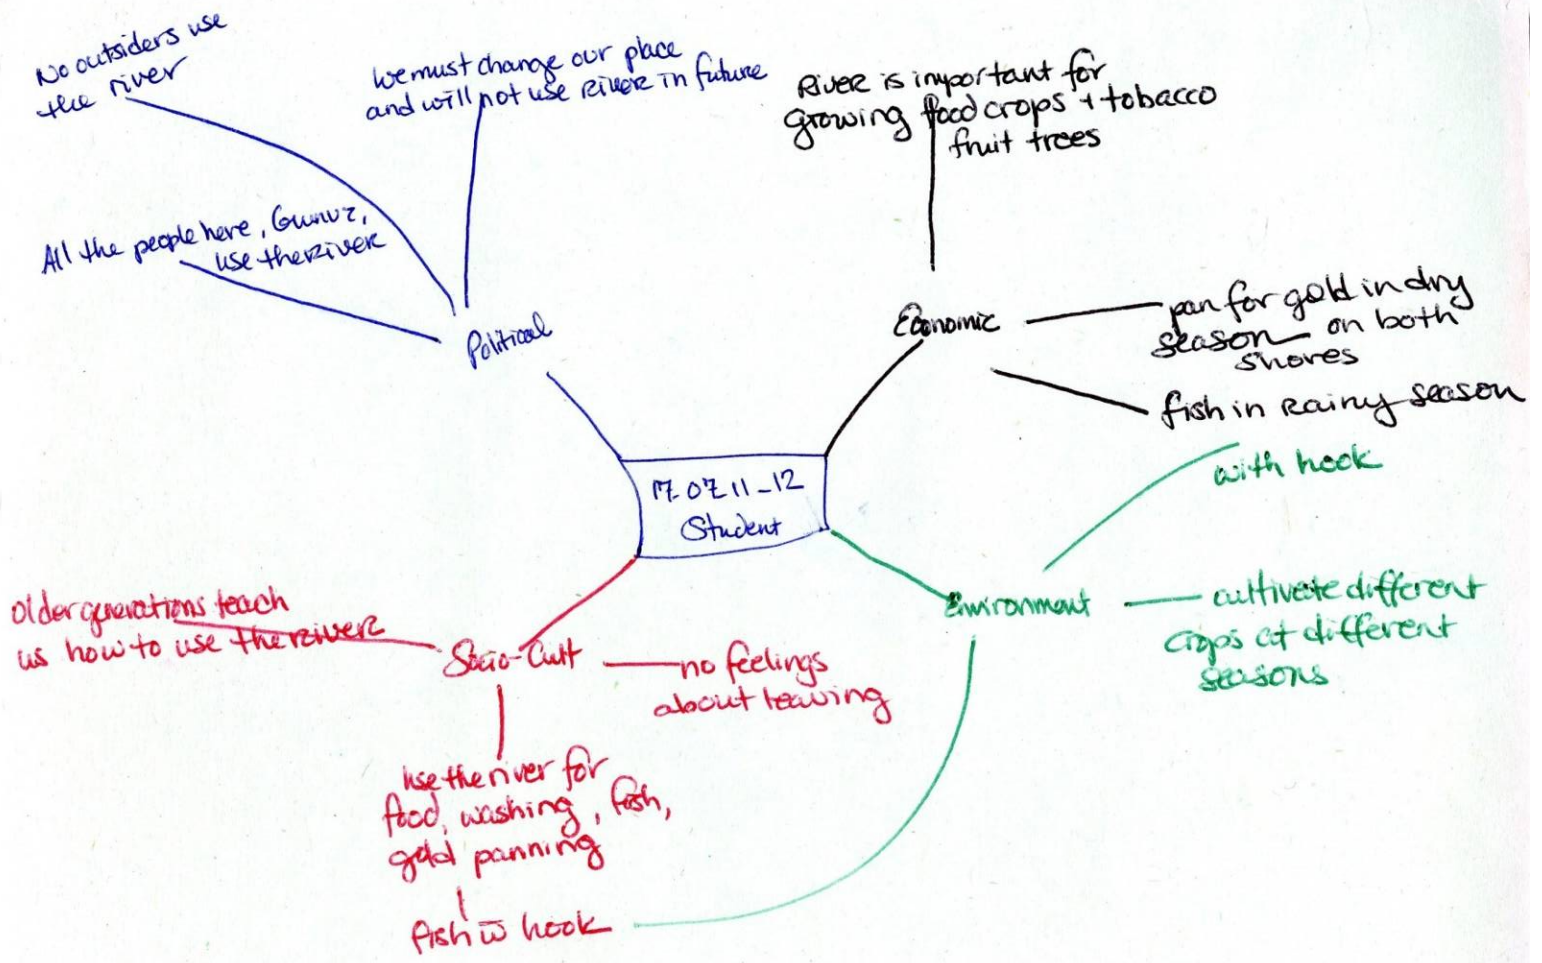 No outsiders use
the river
we must change our place
and will not use River in future
River is important for
growing food crops + tobacco
fruit trees
All the people here, Gumuz,
use the River
Political
Economic
pan for gold in dry
season on both
shores
fish in rainy season
with hook
17.07.11-12
Student
Environment
cultivate different
crops at different
seasons
Older generations teach
us how to use the River
Socio-Cult
no feelings
about leaving
use the river for
food, washing, fish,
gold panning
fish w̄ hook